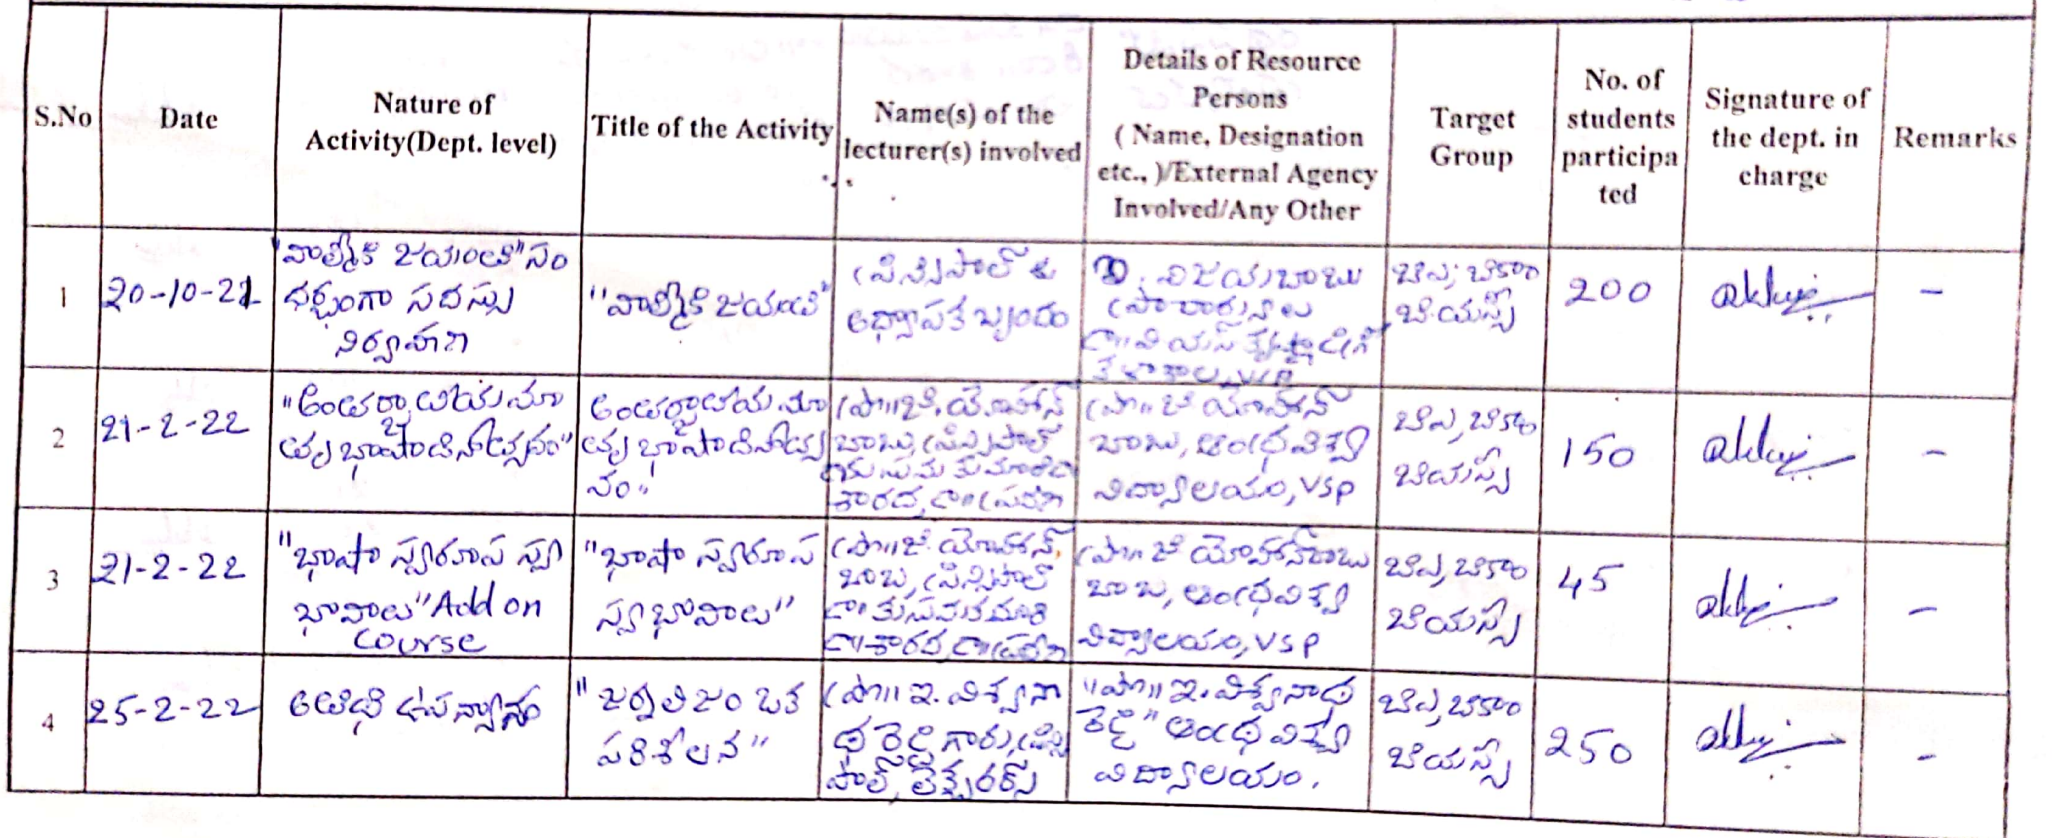 S.No Date Nature of Activity(Dept. level) Title of the Activity Name(s) of the lecturer(s) involved Details of Resource Persons ( Name, Designation etc., )/External Agency Involved/Any Other Target Group No. of students participa ted Signature of the dept. in charge Remarks
1
20-10-21
"వాల్మీకి జయంతి" సం
దర్భంగా సదస్సు
నిర్వహణ
"వాల్మీకి జయంతి"
ప్రిన్సిపాల్ &
అధ్యాపక బృందం
విజయబాబు
బిఎ, బికాం
బియస్సీ
200
–
2
21-2-22
"అంతర్జాతీయ మా
తృభాషాదినోత్సవం"
అంతర్జాతీయ మా
తృభాషాదినోత్స
వం"
ప్రొ॥ జి. యోహాన్
బాబు, ప్రిన్సిపాల్
శారద,
ప్రొ॥ జి యోహాన్
బాబు, ఆంధ్రవిశ్వ
విద్యాలయం, VSP
బిఎ, బికాం
బియస్సీ
150
–
3
21-2-22
"భాషా స్వరూప స్వ
భావాలు" Add on
course
"భాషా స్వరూప
స్వభావాలు"
ప్రొ॥ జి. యోహాన్,
బాబు, ప్రిన్సిపాల్
ప్రొ॥ జి యోహాన్
బాబు, ఆంధ్రవిశ్వ
విద్యాలయం, VSP
బిఎ, బికాం
బియస్సీ
45
–
4
25-2-22
అతిథి ఉపన్యాసం
"జర్నలిజం ఒక
పరిశీలన"
ప్రొ॥ ఇ. విశ్వనా
థ రెడ్డి గారు, ప్రిన్సి
పాల్, లెక్చరర్స్
"ప్రొ॥ ఇ. విశ్వనాథ
రెడ్డి" ఆంధ్ర విశ్వ
విద్యాలయం.
బిఎ, బికాం
బియస్సీ
250
–